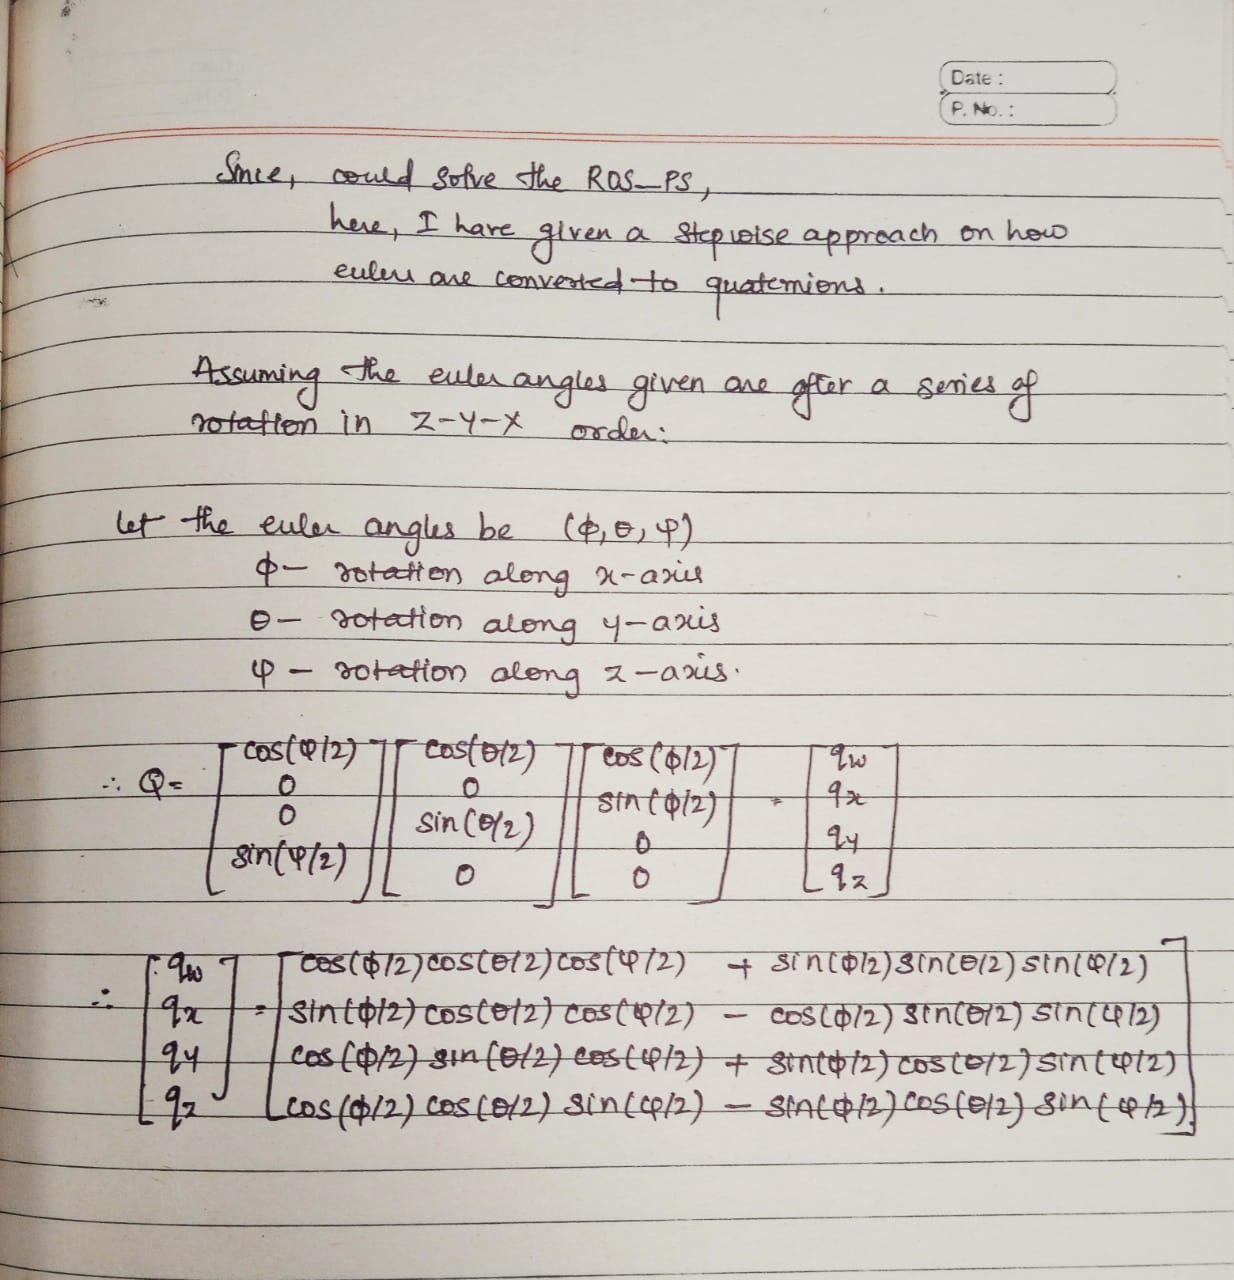 Date :
P. No. :
Since, could solve the ROS_PS,
here, I have given a stepwise approach on how
eulers are converted to quaternions.
Assuming the euler angles given are after a series of
rotation in Z-Y-X order:
Let the euler angles be (ϕ, θ, φ)
ϕ- rotation along x-axis
θ- rotation along y-axis
φ - rotation along z-axis.
∴ Q = [cos(φ/2) 0 0 sin(φ/2)] [cos(θ/2) 0 sin(θ/2) 0] [cos(ϕ/2) sin(ϕ/2) 0 0] = [qw qx qy qz]
∴ [qw qx qy qz] = [cos(ϕ/2)cos(θ/2)cos(φ/2) + sin(ϕ/2)sin(θ/2)sin(φ/2)
sin(ϕ/2)cos(θ/2)cos(φ/2) - cos(ϕ/2)sin(θ/2)sin(φ/2)
cos(ϕ/2)sin(θ/2)cos(φ/2) + sin(ϕ/2)cos(θ/2)sin(φ/2)
cos(ϕ/2)cos(θ/2)sin(φ/2) - sin(ϕ/2)cos(θ/2)sin(φ/2)]